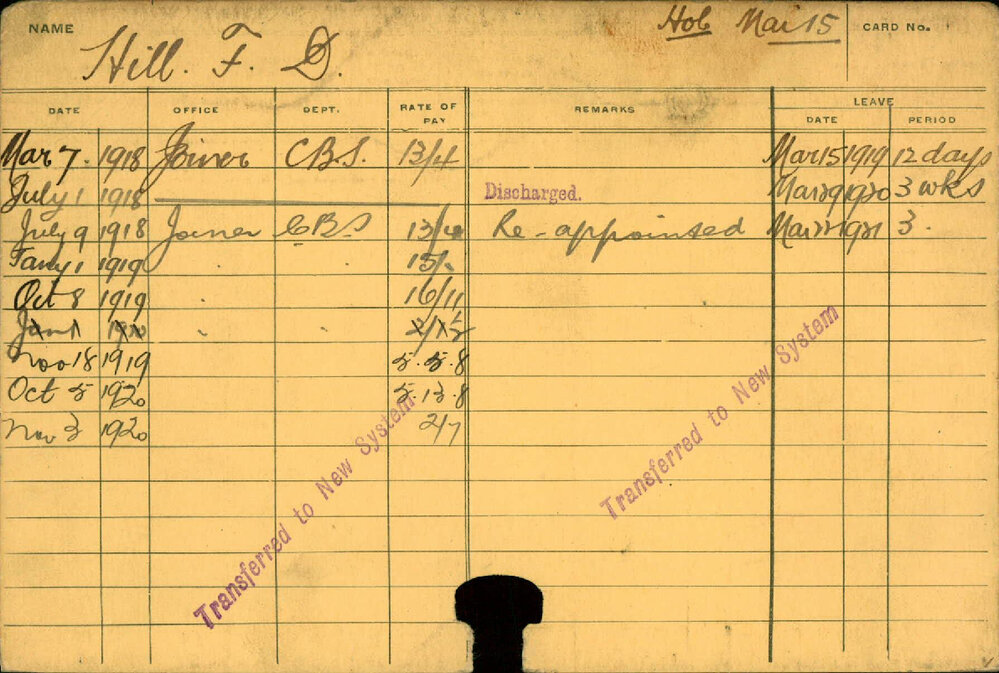 NAME Hill. F. D. Hob Mar 15 CARD No.
DATE OFFICE DEPT. RATE OF PAY REMARKS LEAVE
DATE PERIOD
Mar 7. 1918 Joiner C.B.S. 13/4 Mar 15 1919 12 days
July 1 1918 Discharged. Mar 29 1920 3 wks
July 9 1918 Joiner C.B.S 13/4 Re-appointed Mar 1921 3.
Jany 1 1919 15/.
Oct 8 1919 16/11
Jan 1 1920
Nov 18 1919 5.5.8
Oct 5 1920 5.13.8
Nov 3 1920 2/7
Transferred to New System
Transferred to New System